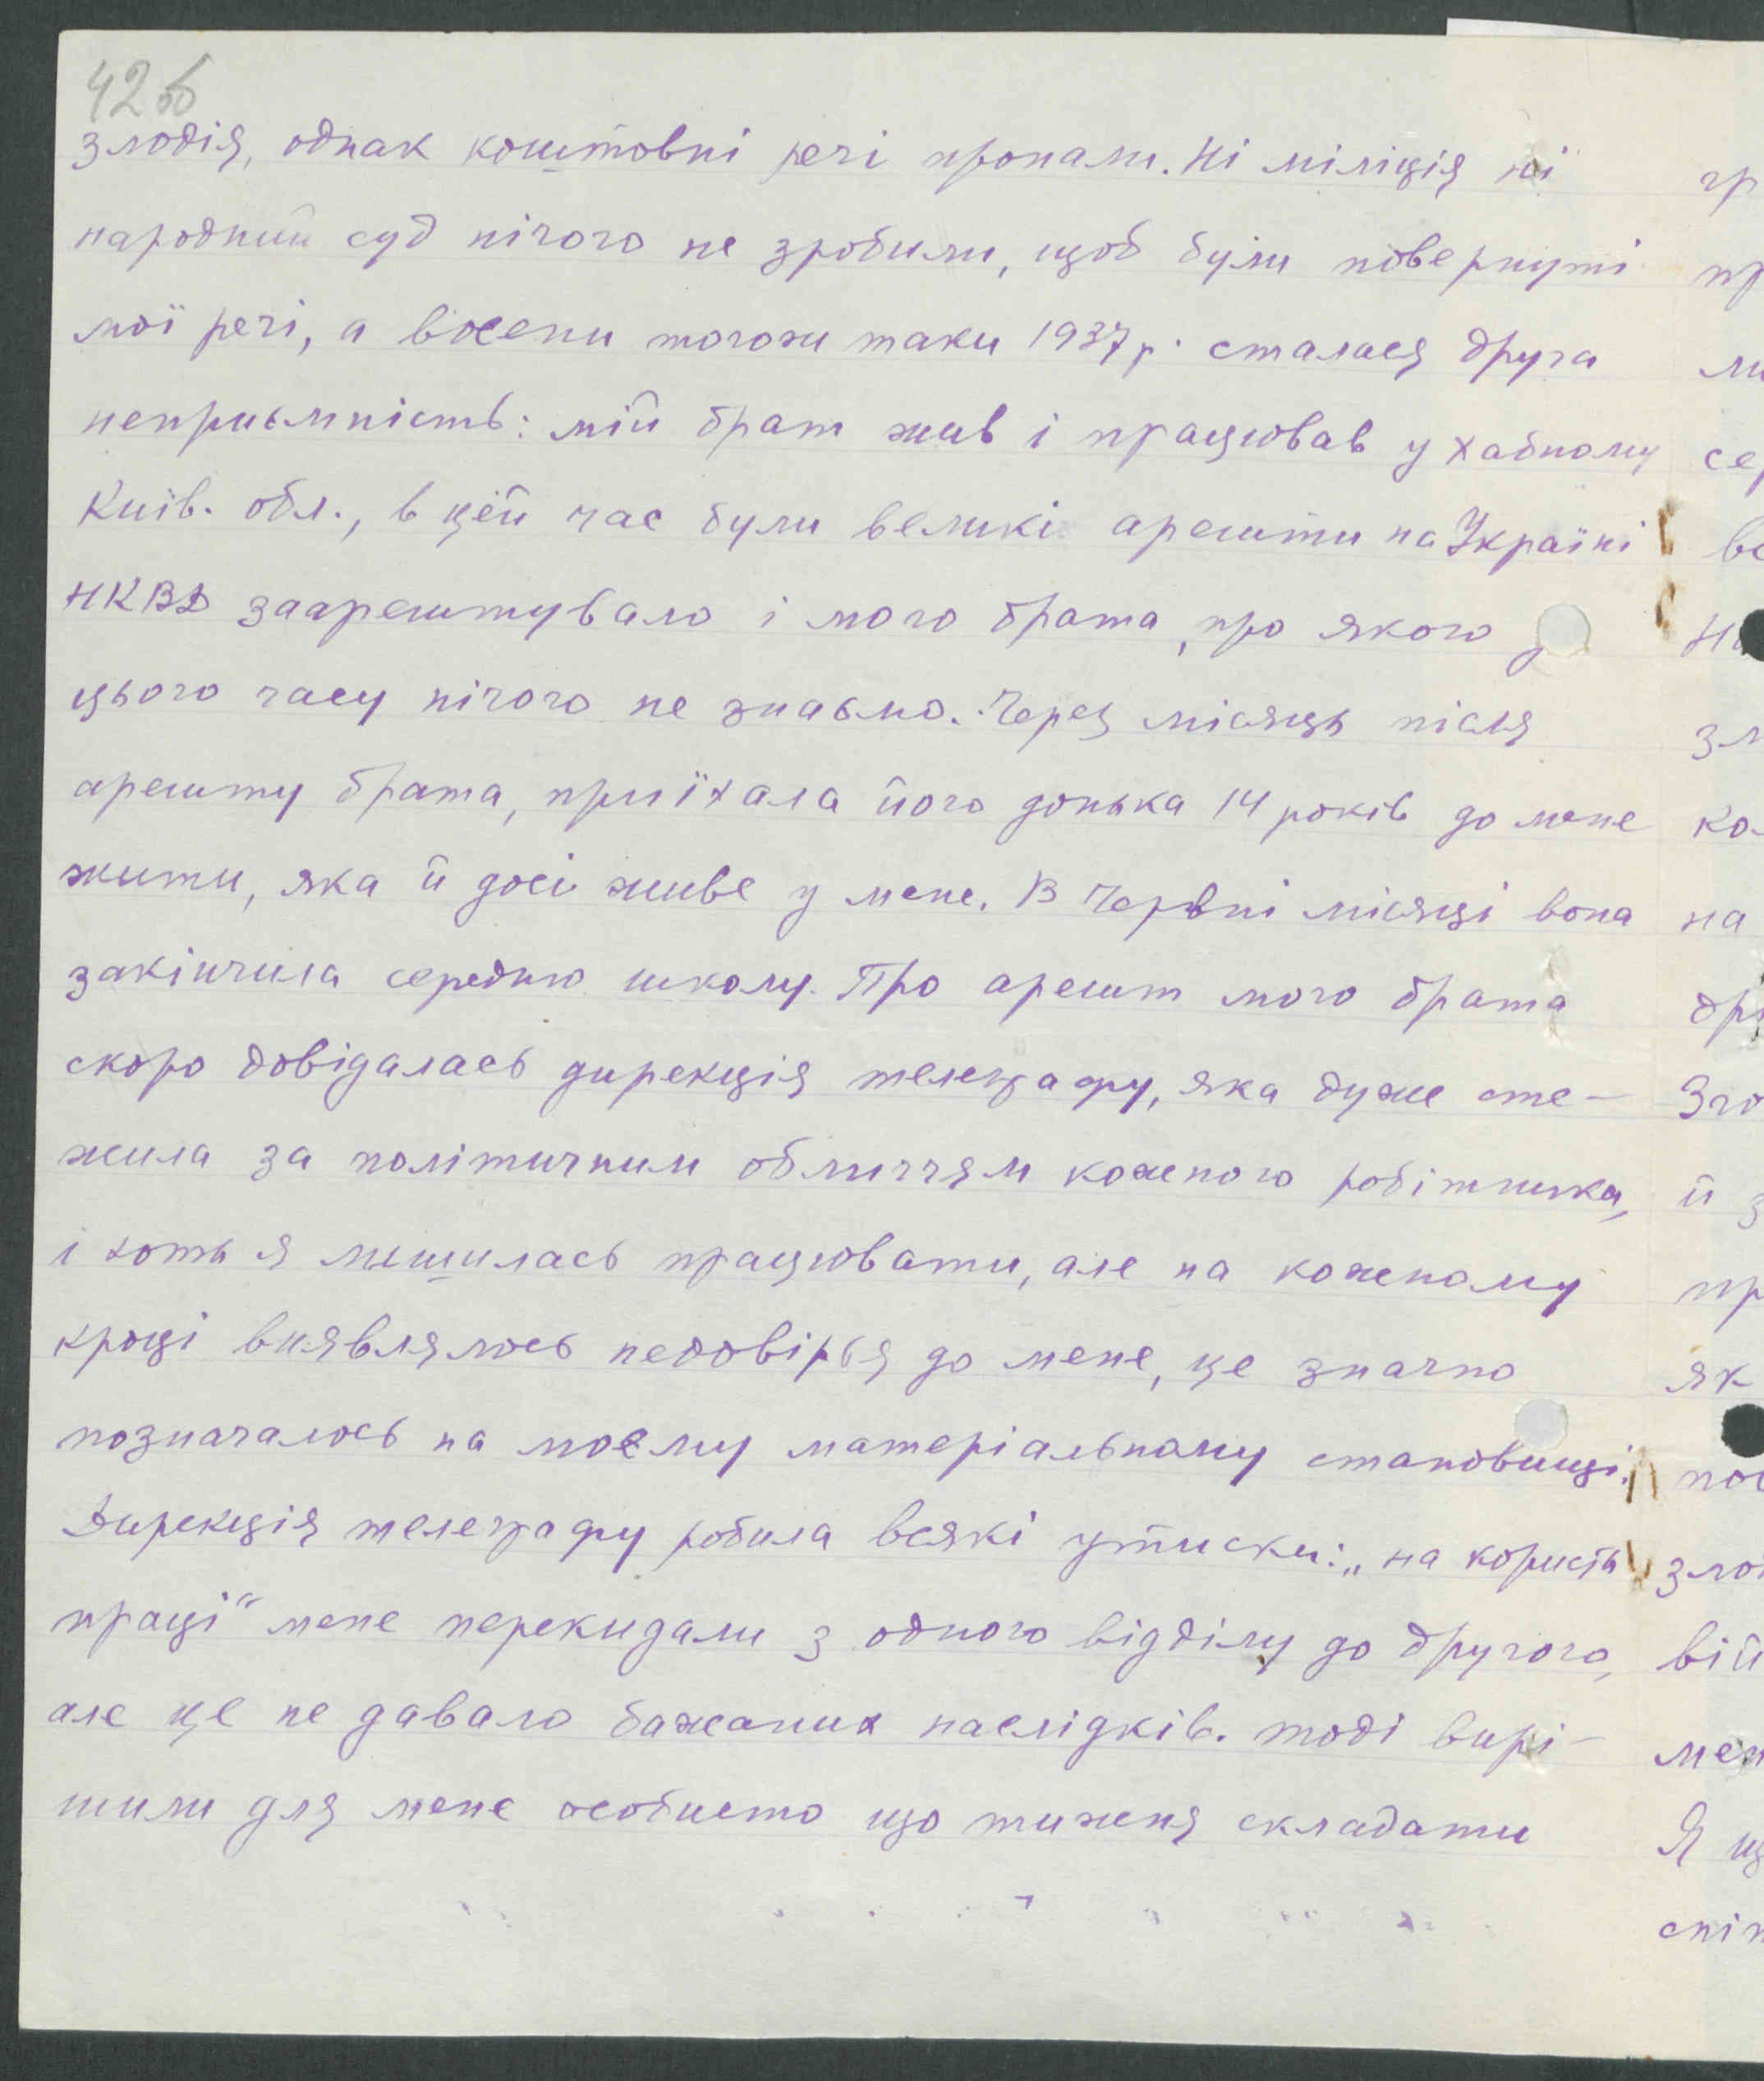 42 об
злодія, однак коштовні речі пропали. Ні міліція ні
народний суд нічого не зробили, щоб були повернуті
мої речі, а восени тогожи таки 1937 р. сталася друга
неприємність: мій брат жив і працював у Хабному
Київ. обл., в цей час були великі арешти на Україні
НКВД заарештувало і мого брата, про якого
цього часу нічого не знаємо. Через місяць після
арешту брата, приїхала його донька 14 років до мене
жити, яка й досі живе у мене. В Червні місяці вона
закінчила середню школу. Про арешт мого брата
скоро довідалась дирекція телеграфу, яка дуже сте-
жила за політичним обличчям коженого робітника,
і хоть я лишилась працювати, але на коженому
кроці виявлялось недовірья до мене, це значно
позначалось на моєму матеріальному становищі.
Дирекція телеграфу робила всякі утиски: „на користь
праці“ мене перекидали з одного відділу до другого,
але це не давало бажаних наслідків. тоді вирі-
шили для мене особисто що тиженя складати